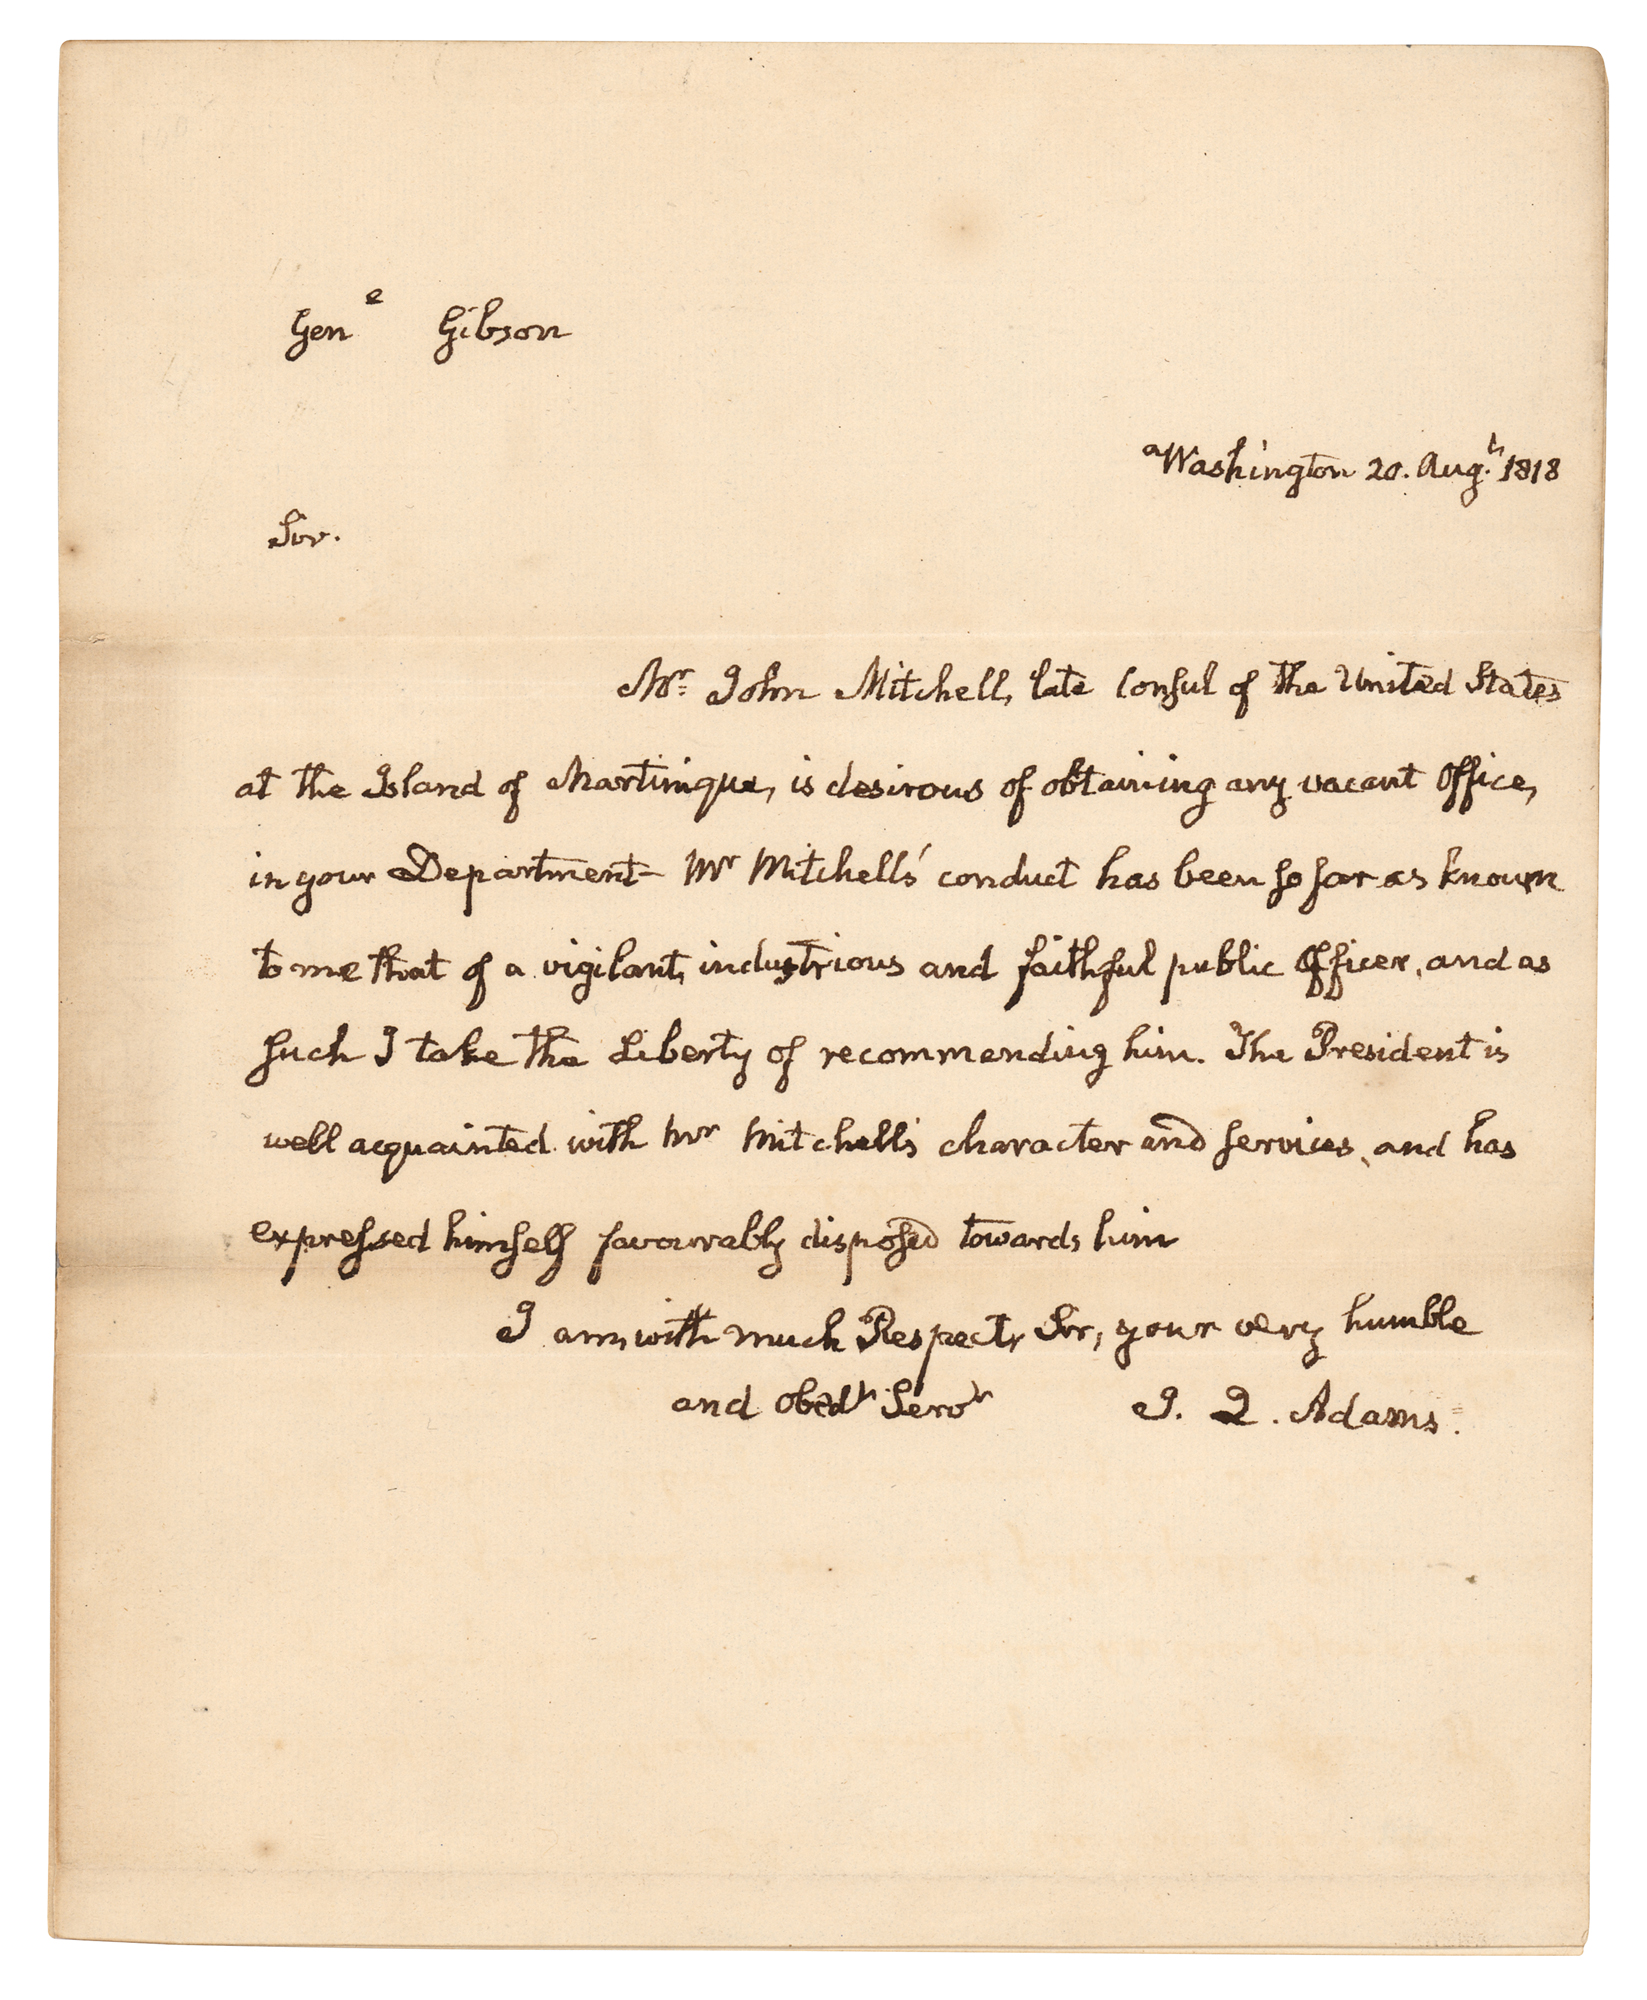 Gen^e Gibson
Washington 20. Aug^t. 1818
Sir.
Mr. John Mitchell, late Consul of the United States
at the Island of Martinique, is desirous of obtaining any vacant Office,
in your Department– Mr Mitchell's conduct has been so far as known
to me that of a vigilant, industrious and faithful public Officer, and as
such I take the Liberty of recommending him. The President is
well acquainted with Mr Mitchell's character and services, and has
expressed himself favourably disposed towards him
I am, with much Respect, Sir, your very humble
and obed^t Serv^t J. Q. Adams.